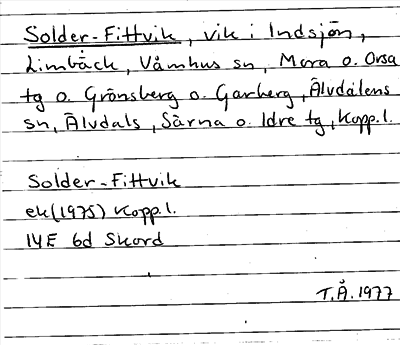 Solder-Fittvik, vik i Indsjön,
Limbäck, Våmhus sn, Mora o. Orsa
tg o. Grönsberg o. Garberg, Älvdalens
sn, Älvdals, Särna o. Idre tg, Kopp.l.
Solder-Fittvik
ek (1975) Kopp.l.
14E 6d Skord
T.Å. 1977